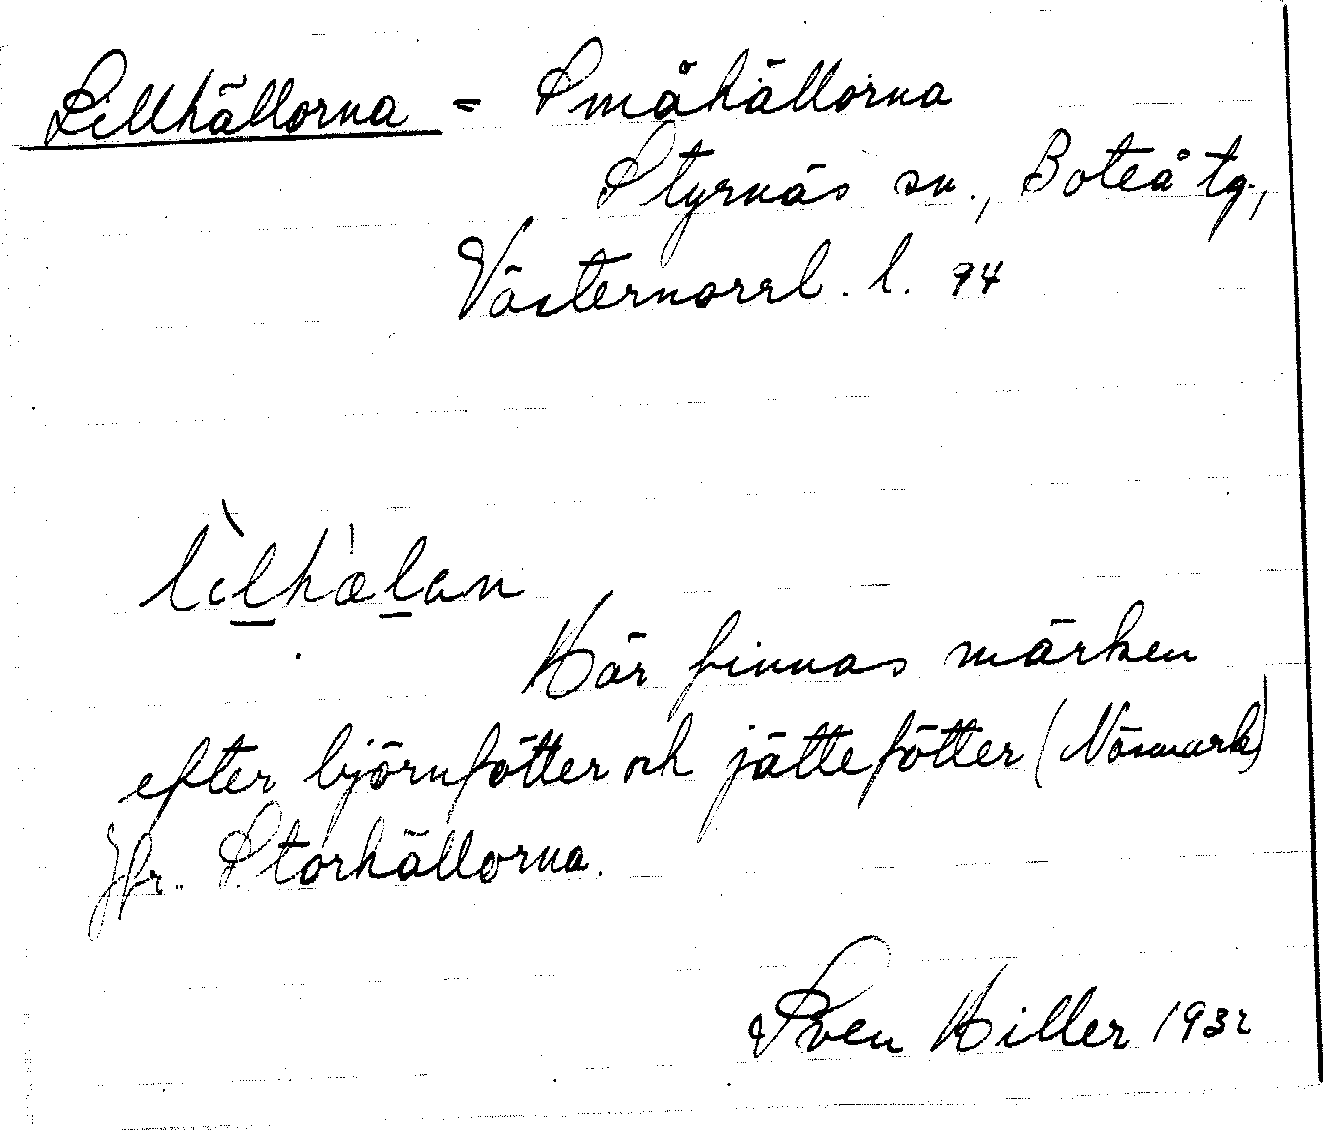 Lillhällorna = Småhällorna
Styrnäs sn., Boteå tg.,
Västernorrl. l. 94
lìlhæ̀lan
Här finnas märken
efter björnfötter och jättefötter (Näsmark)
Jfr. Storhällorna.
Sven Hiller 1932